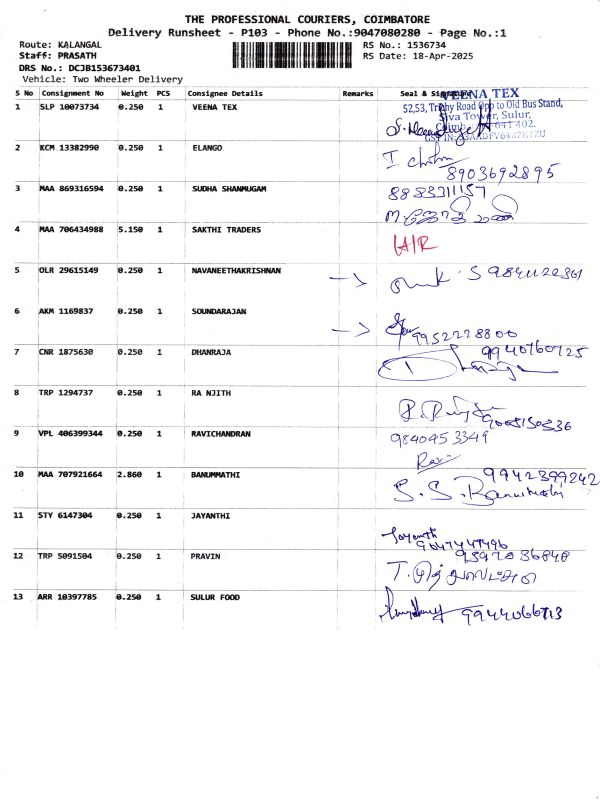 THE PROFESSIONAL COURIERS, COIMBATORE
Delivery Runsheet - P103 - Phone No.:9047080280 - Page No.:1
Route: KALANGAL RS No.: 1536734
Staff: PRASATH RS Date: 18-Apr-2025
DRS No.: DCJB153673401
Vehicle: Two Wheeler Delivery
S No Consignment No Weight PCS Consignee Details Remarks Seal & Signature
VEENA TEX
1 SLP 10073734 0.250 1 VEENA TEX
52,53, Trichy Road Opp to Old Bus Stand,
Siva Tower, Sulur,
2 KCM 13382990 0.250 1 ELANGO
8903692895
3 MAA 869316594 0.250 1 SUDHA SHANMUGAM 8883311157
4 MAA 706434988 5.150 1 SAKTHI TRADERS
5 OLR 29615149 0.250 1 NAVANEETHAKRISHNAN
6 AKM 1169837 0.250 1 SOUNDARAJAN
9952228800
7 CNR 1875630 0.250 1 DHANRAJA 9940760725
8 TRP 1294737 0.250 1 RA NJITH
9 VPL 406399344 0.250 1 RAVICHANDRAN 9840453349
Ravi
10 MAA 707921664 2.860 1 BANUMMATHI 9942399242
S. S. Banumathi
11 STY 6147304 0.250 1 JAYANTHI
Jayanth
12 TRP 5091504 0.250 1 PRAVIN
13 ARR 10397785 0.250 1 SULUR FOOD
9944066713